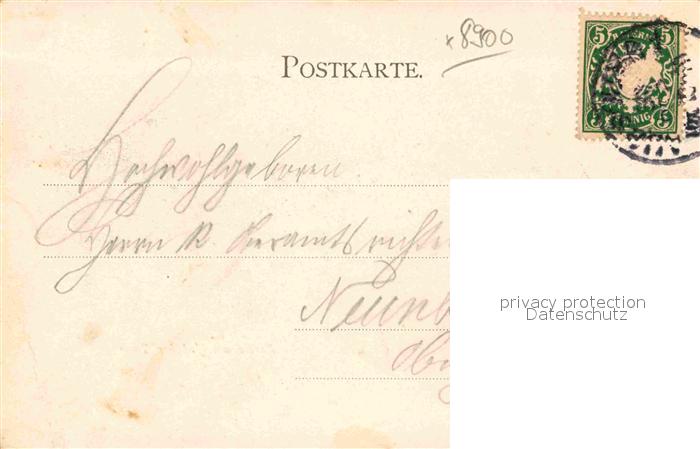 x 8900
5 BAYERN 5
POSTKARTE.
5 PFENNIG 5
Hochwohlgeboren
Herrn K. Oberamtsrichter
Neunb
Ob
privacy protection
Datenschutz